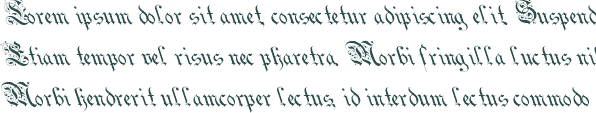 Lorem ipsum dolor sit amet, consectetur adipiscing elit. Suspend
Etiam tempor vel risus nec pharetra. Morbi fringilla luctus ni
Morbi hendrerit ullamcorper lectus, id interdum lectus commodo